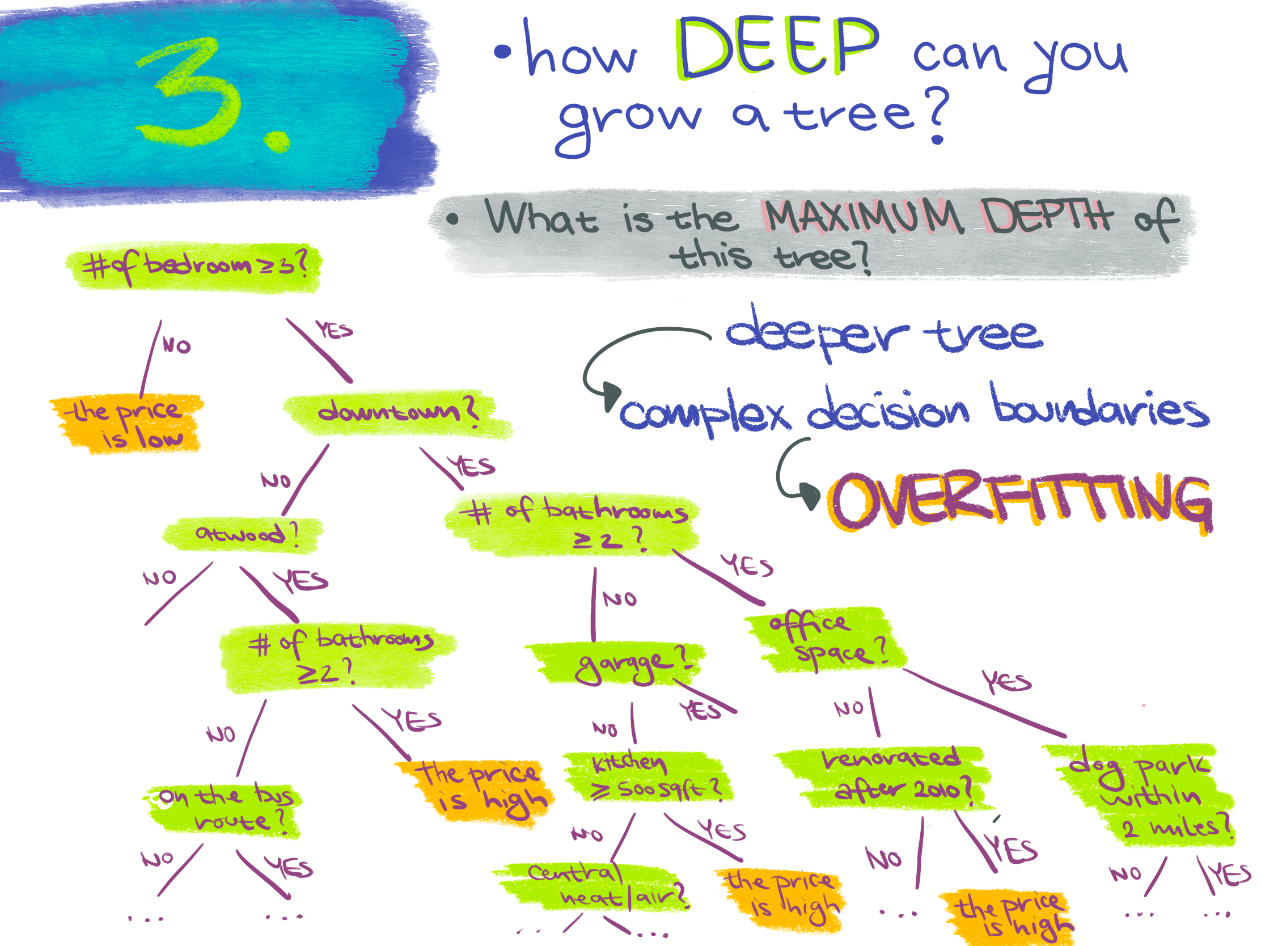 3.
• how DEEP can you
grow a tree?
• What is the MAXIMUM DEPTH of
this tree?
deeper tree
complex decision boundaries
OVERFITTING
# of bedroom ≥3?
NO
YES
the price
is low
downtown?
NO
YES
atwood?
# of bathrooms
≥ 2?
NO
YES
NO
YES
# of bathrooms
≥2?
garage?
office
space?
NO
YES
NO
YES
NO
YES
on the bus
route?
the price
is high
kitchen
≥ 500 sqft?
renovated
after 2010?
dog park
within
2 miles?
NO
YES
NO
YES
NO
YES
NO
YES
...
...
central
heat/air?
the price
is high
...
the price
is high
...
...
...
...